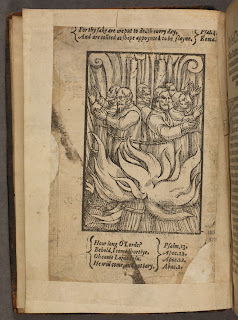 For thy sake are we put to death euery day,
And are coūted as shepe appoynted to be slayne.
Psal.4
Roma.
How long O Lorde?
Behold, I come shortlye.
Oh come Lord Iesu.
He will come, and not tary.
Psalm.13.
Apoc.22.
Apoc.22.
Abac.2.